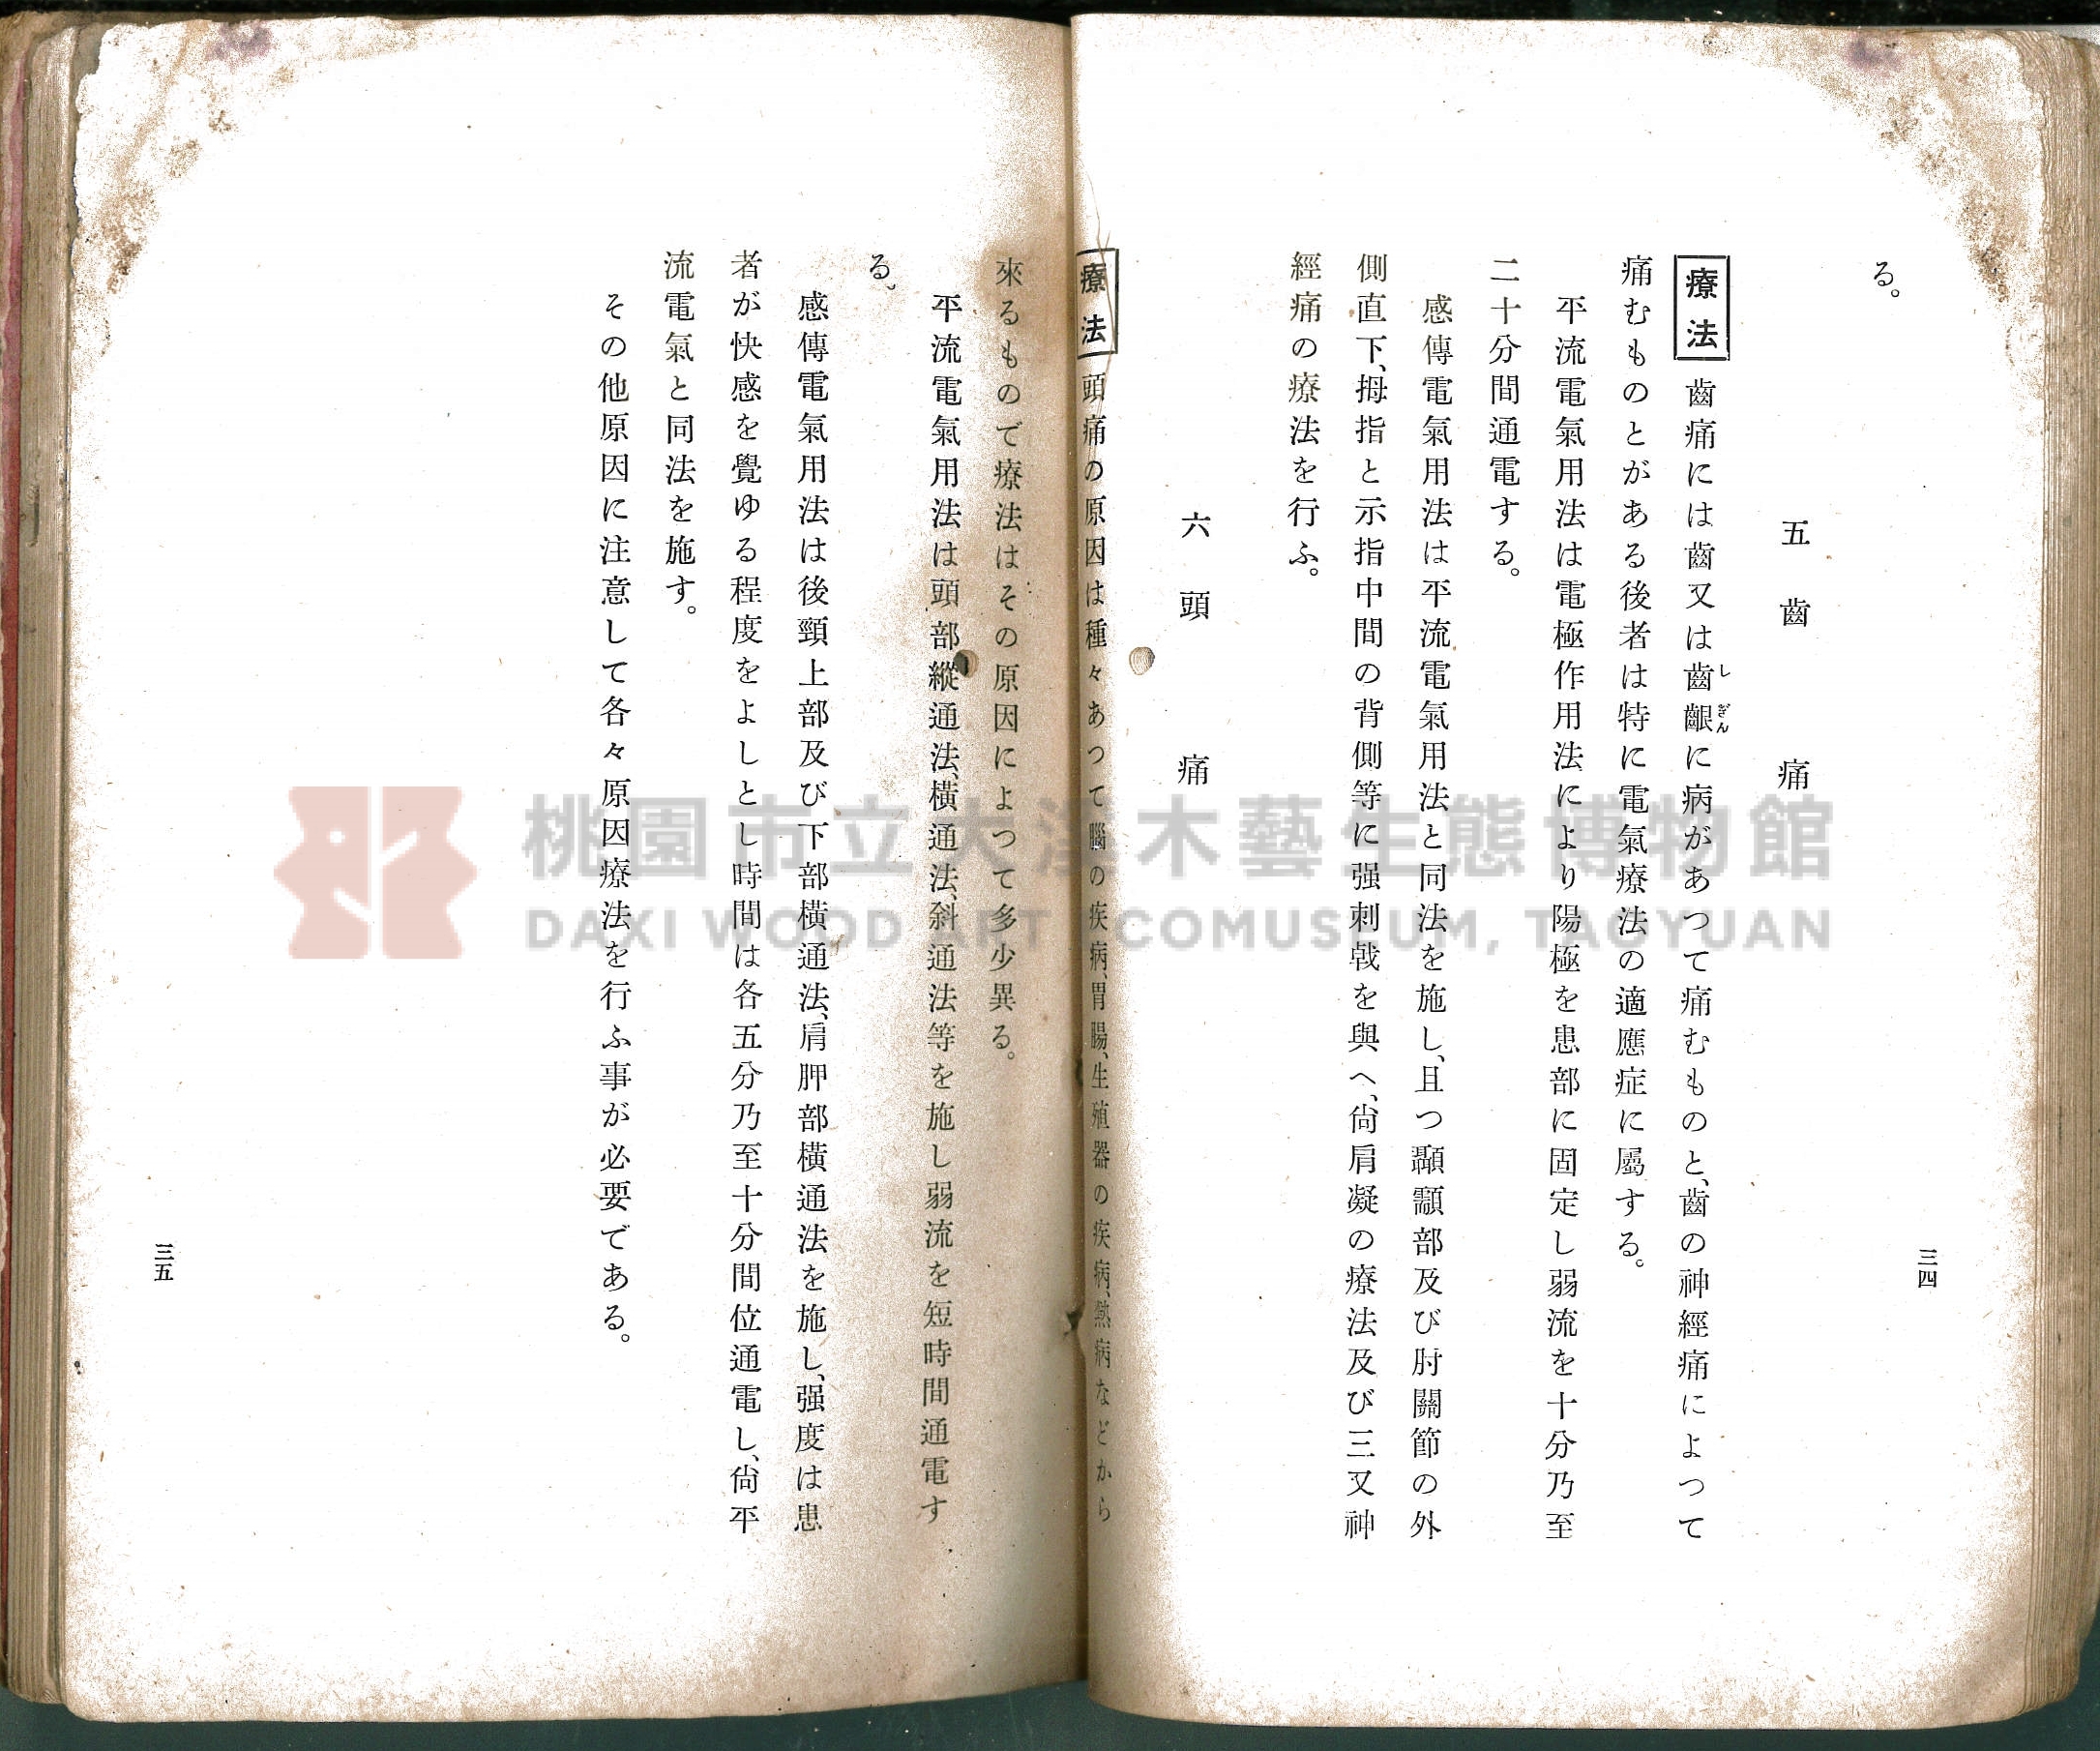 る。
五　齒　　痛
療法　齒痛には齒又は齒齦に病があつて痛むものと、齒の神經痛によつて
しぎん
痛むものとがある後者は特に電氣療法の適應症に屬する。
平流電氣用法は電極作用法により陽極を患部に固定し弱流を十分乃至
二十分間通電する。
感傳電氣用法は平流電氣用法と同法を施し、且つ顳顬部及び肘關節の外
側直下、拇指と示指中間の背側等に强刺戟を與へ、尙肩凝の療法及び三叉神
經痛の療法を行ふ。
六　頭　　痛
療法　頭痛の原因は種々あつて腦の疾病、胃腸、生殖器の疾病、熱病などから
三四
來るもので療法はその原因によつて多少異る。
平流電氣用法は頭部縱通法、橫通法、斜通法等を施し弱流を短時間通電す
る。
感傳電氣用法は後頸上部及び下部橫通法、肩胛部橫通法を施し、强度は患
者が快感を覺ゆる程度をよしとし時間は各五分乃至十分間位通電し、尙平
流電氣と同法を施す。
その他原因に注意して各々原因療法を行ふ事が必要である。
三五
桃園市立大溪木藝生態博物館
DAXI WOOD ART ECOMUSEUM, TAOYUAN